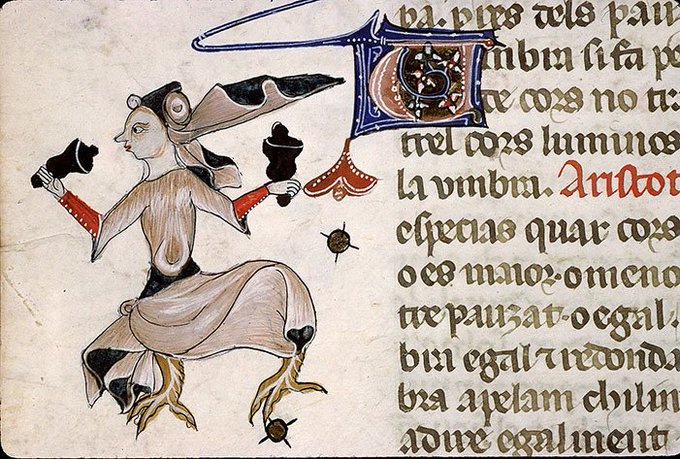 pa. pires dels pau
Vmbra si fa pe
te cors no tra
trel cors luminos
la vmbra. Aristot
especias quar cors
o es maior. o meno
tre pauzat. o egal.
bri egal ⁊ redonda
bra apelam chilin
adire egalment